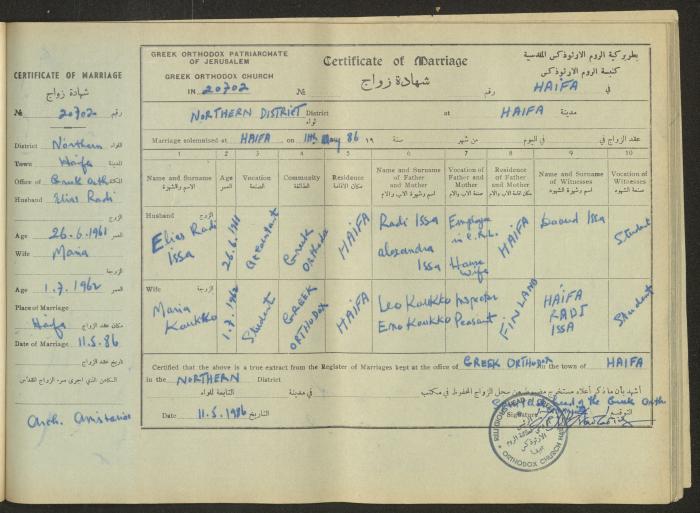 CERTIFICATE OF MARRIAGE
شهادة زواج
№ 20702 رقم
District Northern اللواء
Town Haifa المدينة
Office of Greek Orth.
Husband Elias Radi
الزوج
Age 26.6.1961 العمر
Wife Maria
الزوجة
Age 1.7.1962 العمر
Place of Marriage
Haifa مكان عقد الزواج
Date of Marriage 11.5.86
تاريخ عقد الزواج
GREEK ORTHODOX PATRIARCHATE
OF JERUSALEM
GREEK ORTHODOX CHURCH
IN 20702 №
Certificate of Marriage
شهادة زواج
بطريركية الروم الارثوذكس المقدسية
كنيسة الروم الارثوذكس
رقم HAIFA في
NORTHERN DISTRICT District لواء at HAIFA مدينة
Marriage solemnised at HAIFA, on 11th May 86 19 سنة من شهر في اليوم عقد الزواج في
1 2 3 4 5 6 7 8 9 10
Name and Surname الاسم والشهرة
Age العمر
Vocation الصنعة
Community الطائفة
Residence مكان الاقامة
Name and Surname of Father and Mother اسم وشهرة الاب والام
Vocation of Father and Mother صنعة الاب والام
Residence of Father and Mother
Name and Surname of Witnesses اسم وشهرة الشهود
Vocation of Witnesses صنعة الشهود
Husband الزوج
Elias Radi Issa
26.6.1961
Accountant
Greek Orthodox
HAIFA
Radi Issa
Alexandra Issa
Employee
House wife
HAIFA
Daoud Issa
Student
Wife الزوجة
Maria Koukko
1.7.1962
Student
GREEK ORTHODOX
HAIFA
Leo Koukko Inspector
Eno Koukko Peasant
FINLAND
HAIFA
RADI
ISSA
Student
Certified that the above is a true extract from the Register of Marriages kept at the office of GREEK ORTHODOX in the town of HAIFA
in the NORTHERN District التابعة للواء في مدينة
Date 11.5.1986 التاريخ
Signature التوقيع
ORTHODOX CHURCH